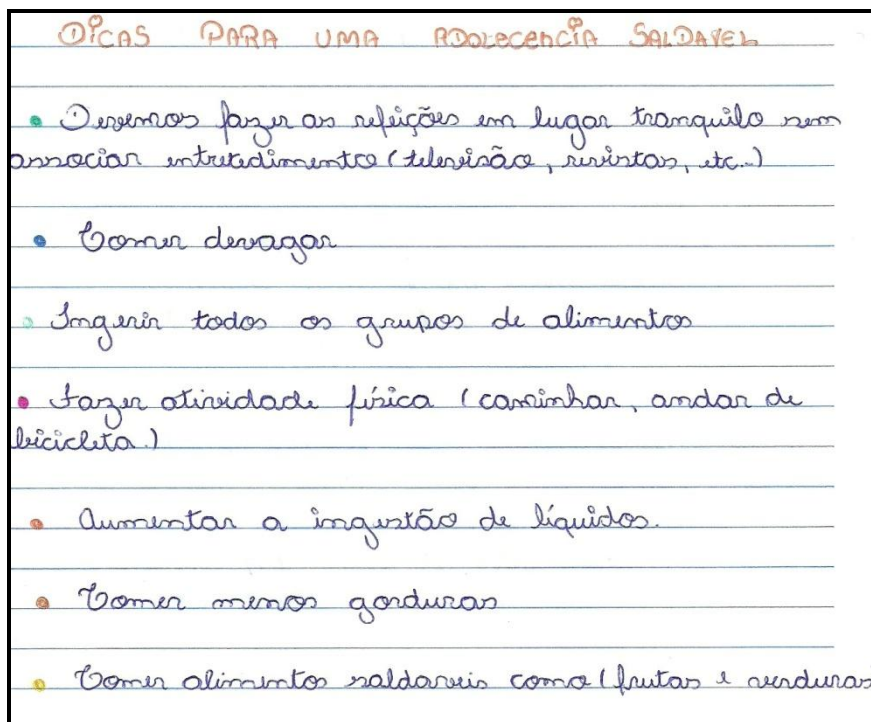 DICAS PARA UMA ADOLECENCIA SALDAVEL
• Devemos fazer as refeições em lugar tranquilo sem
associar entretedimento (televisão, revistas, etc..)
• Comer devagar
• Ingerir todos os grupos de alimentos
• Fazer atividade física (caminhar, andar de
bicicleta.)
• Aumentar a ingestão de líquidos.
• Comer menos gorduras
• Comer alimentos saldaveis como (frutas e verduras